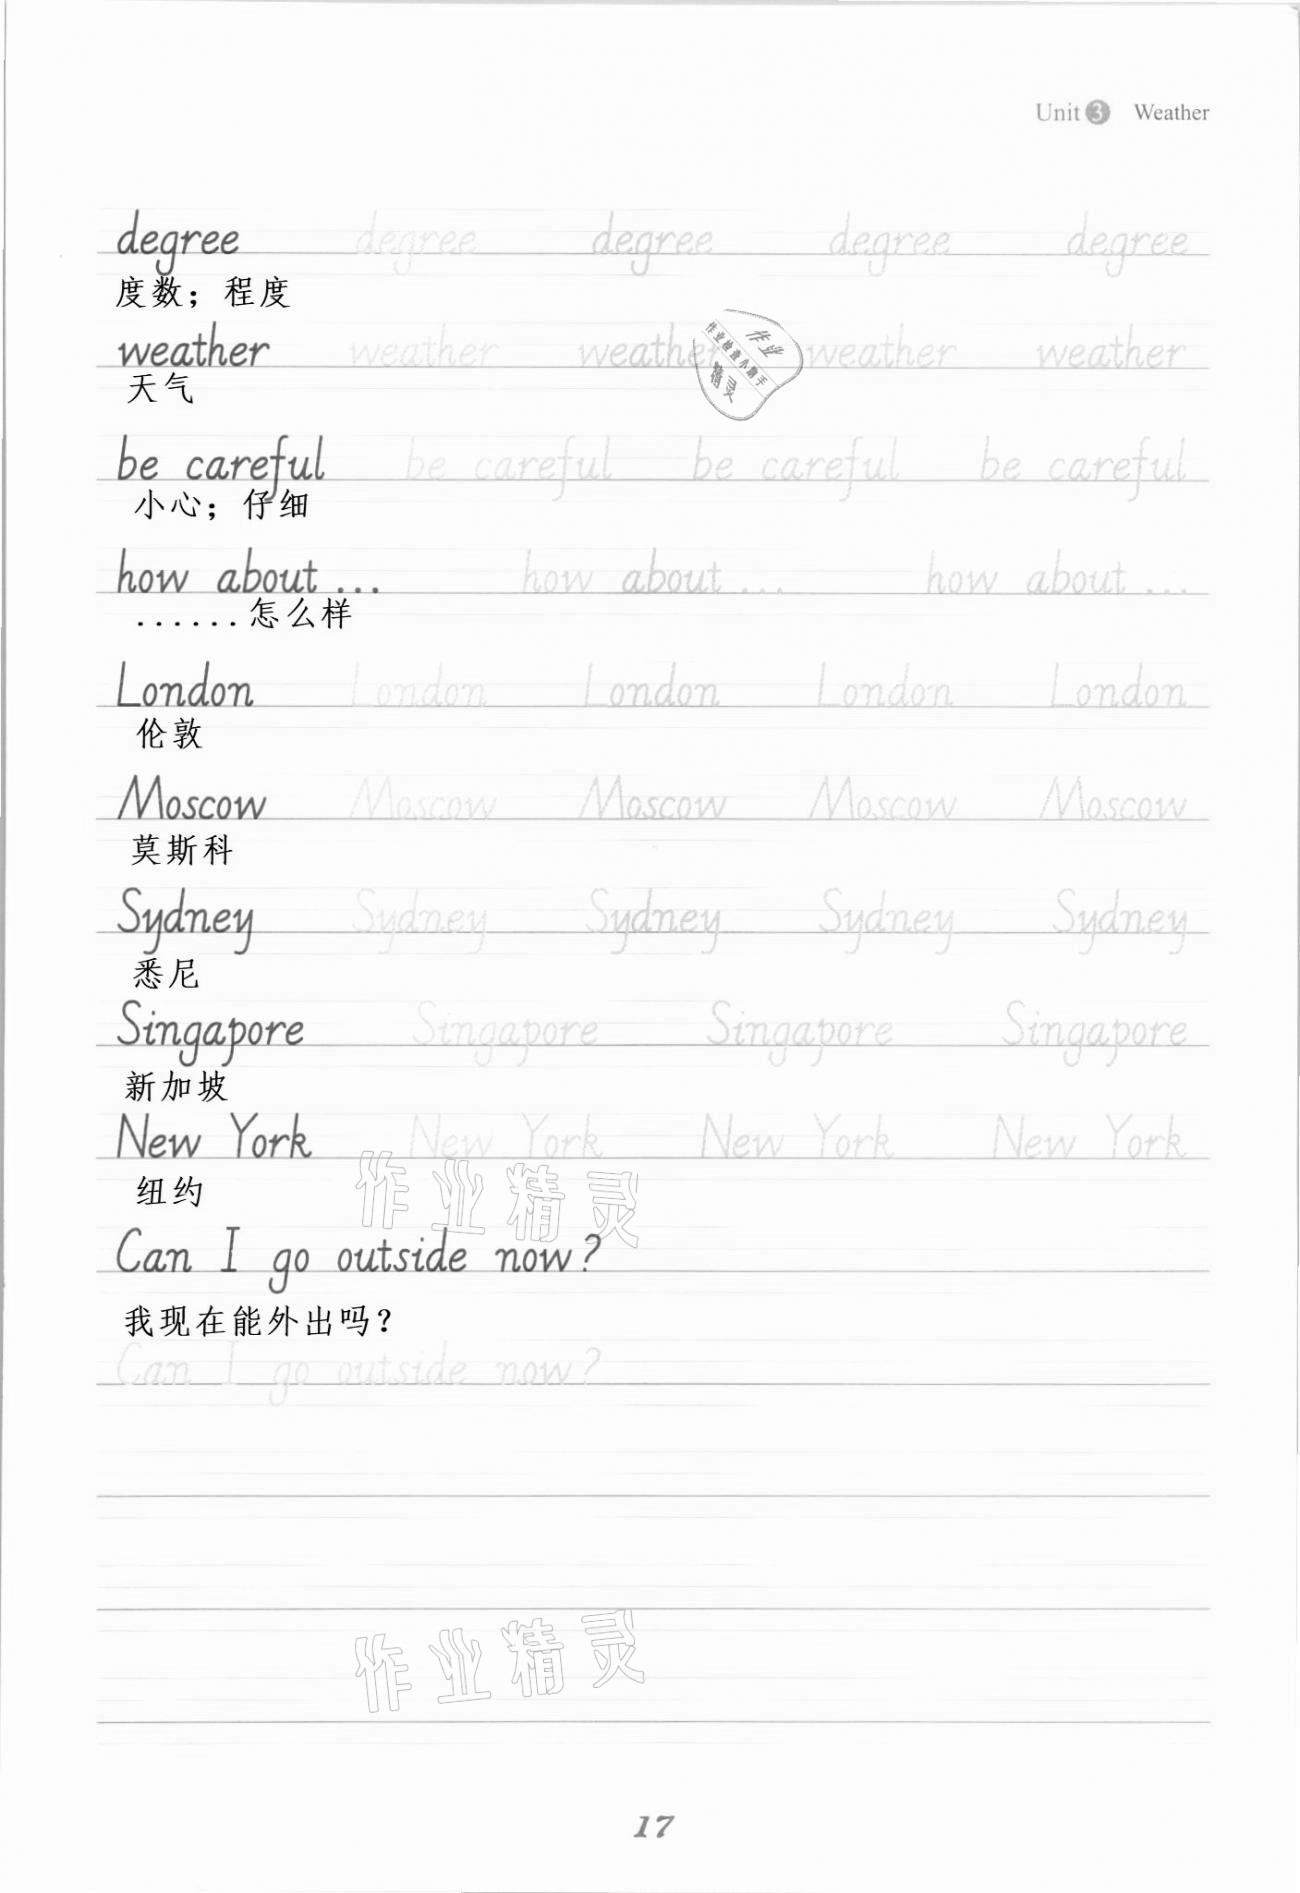 Unit 3 Weather
degree degree degree degree degree
度数；程度
weather weather weather weather weather
天气
be careful be careful be careful be careful
小心；仔细
how about ... how about ... how about ...
......怎么样
London London London London London
伦敦
Moscow Moscow Moscow Moscow Moscow
莫斯科
Sydney Sydney Sydney Sydney Sydney
悉尼
Singapore Singapore Singapore Singapore
新加坡
New York New York New York New York
纽约
Can I go outside now?
我现在能外出吗？
Can I go outside now?
17
作业
作业检查小助手
精灵
作业精灵
作业精灵